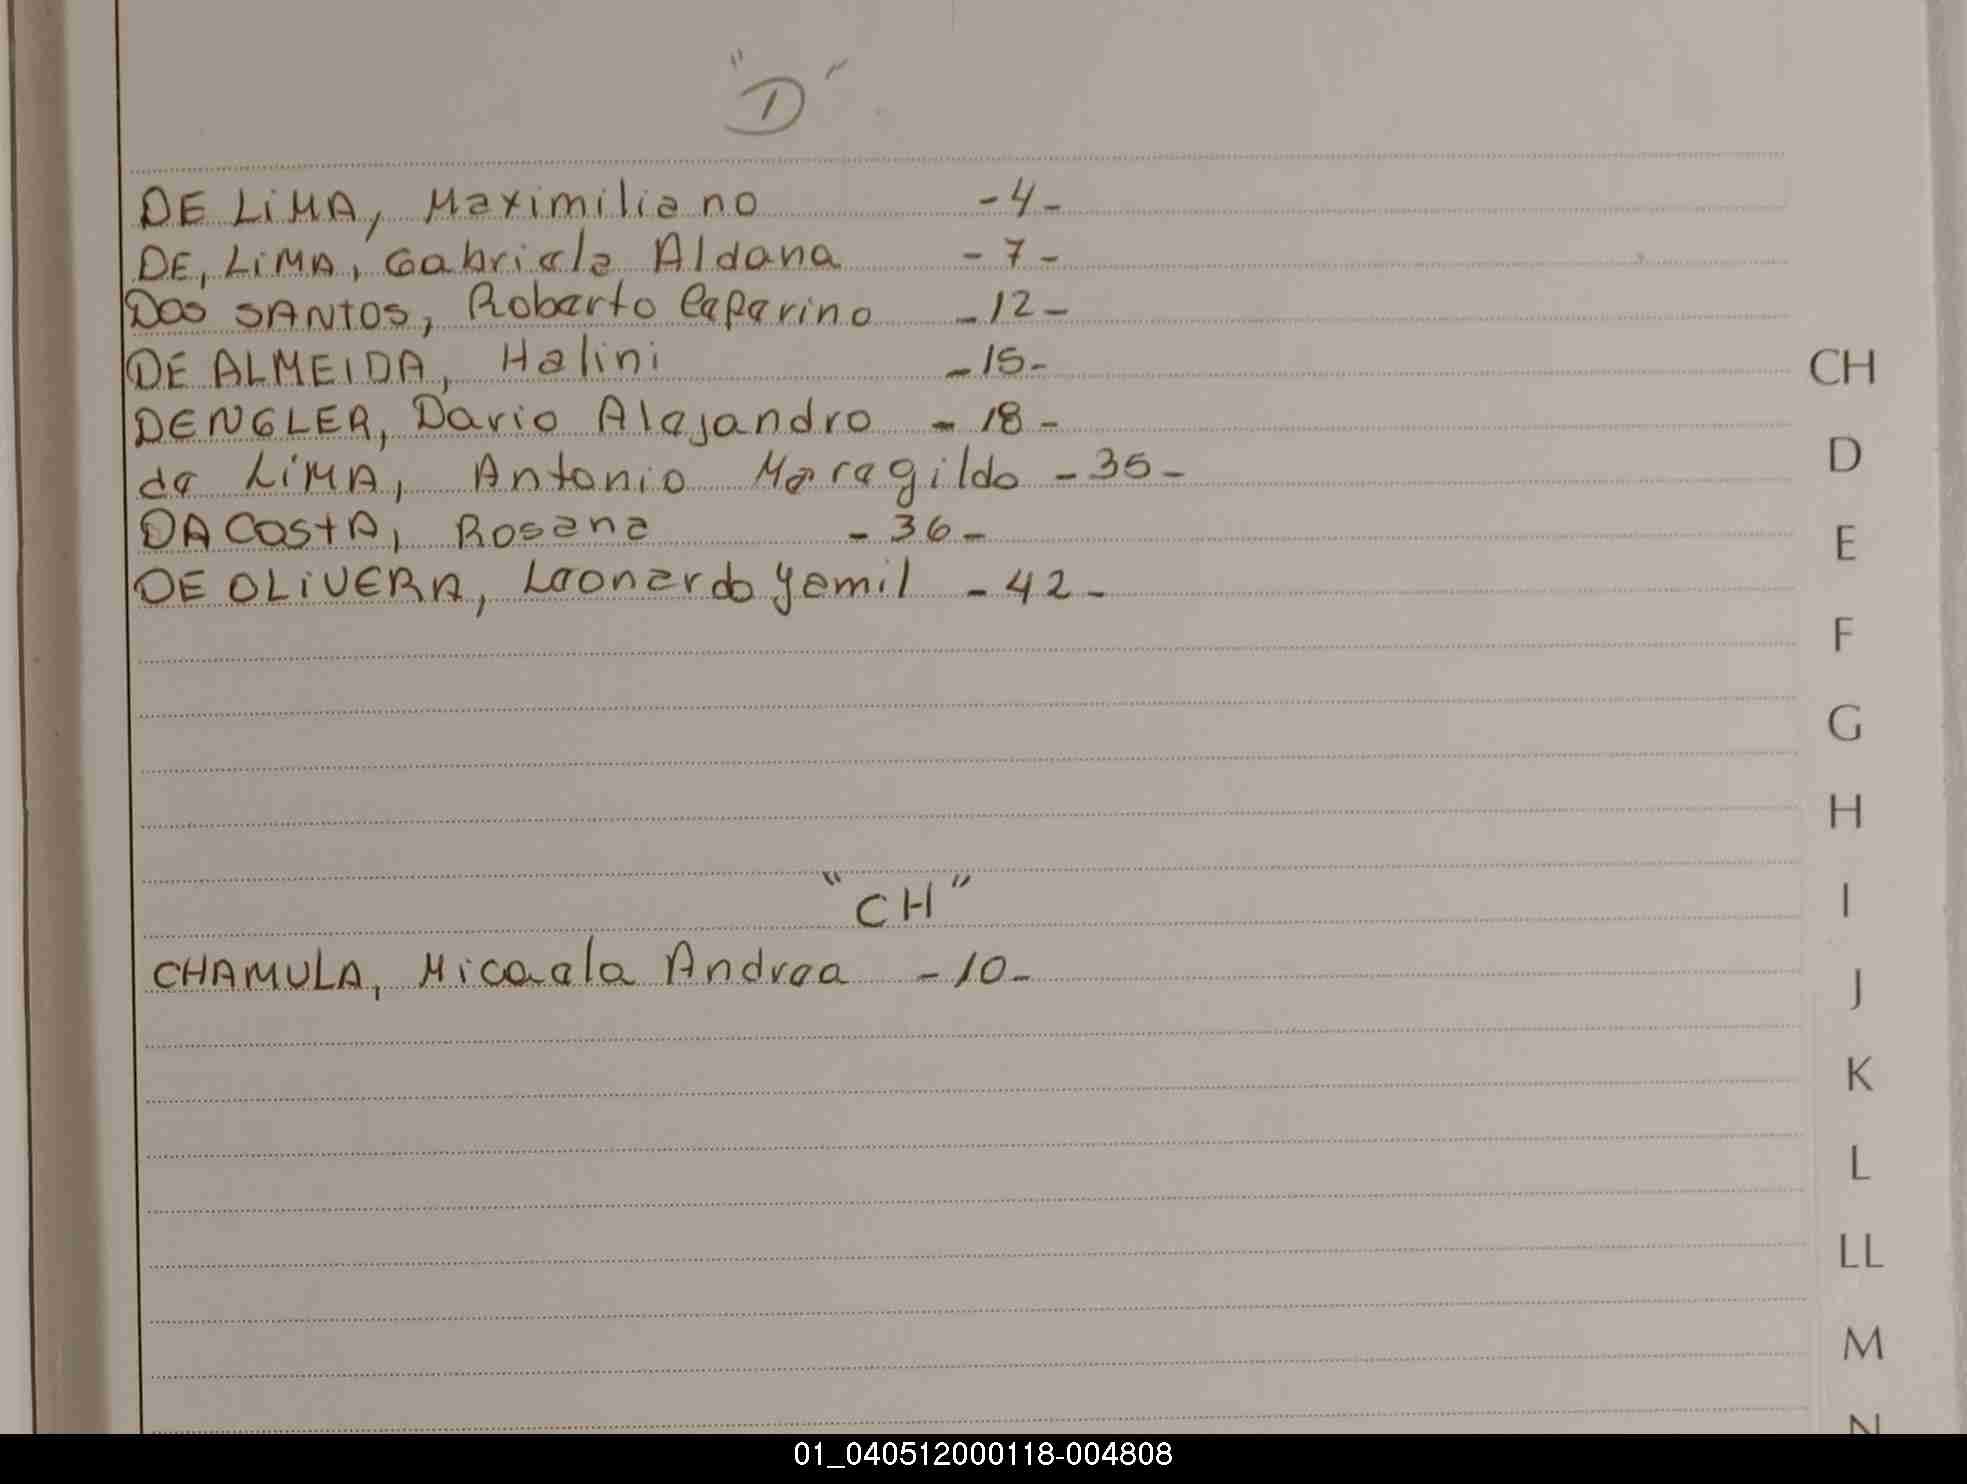 "D"
DE LiMA, Maximiliano -4-
DE, LiMA, Gabriela Aldana -7-
DOS SANTOS, Roberto Ceferino -12-
DE ALMEIDA, Halini -15-
DENGLER, Dario Alejandro -18-
CH
de LiMA, Antonio Meregildo -35-
D
DA COStA, Rosana -36-
E
DE OLiVERA, Leonardo Yamil -42-
F
G
H
"CH"
I
CHAMULA, Micaela Andrea -10-
J
K
L
LL
M
N
01_040512000118-004808